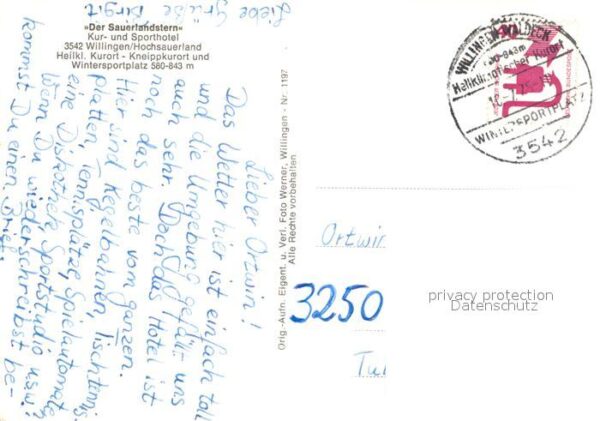 »Der Sauerlandstern«
Kur- und Sporthotel
3542 Willingen/Hochsauerland
Heilkl. Kurort - Kneippkurort und
Wintersportplatz 580-843 m
Lieber Ortwin!
Das Wetter hier ist einfach toll
und die Umgebung gefällt uns
auch sehr. Doch das Hotel ist
noch das beste vom ganzen.
Hier sind Kegelbahnen, Tischtennis
platten, Tennisplätze, Spielautomate
eine Diskothek, Sportstudio usw.!
Wenn Du wiederschreibst be-
kommst Du einen Brief.
Liebe Grüße
Birgit
Orig.-Aufn. Eigent. u. Verl. Foto Werner, Willingen - Nr. 1197
Alle Rechte vorbehalten
WILLINGEN WALDECK
Heilklimatischer Kurort
WINTERSPORTPLATZ
3542
Ortwin
3250
privacy protection
Datenschutz